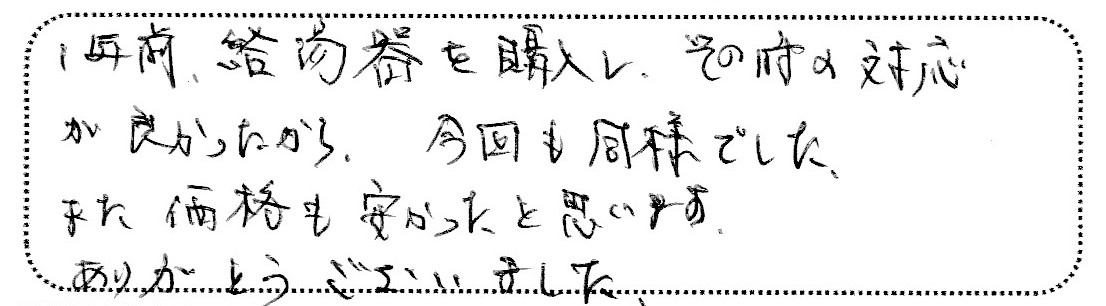 1年前、給湯器を購入し、その時の対応
が良かったから、今回も同様でした、
また価格も安かったと思います。
ありがとうございました、